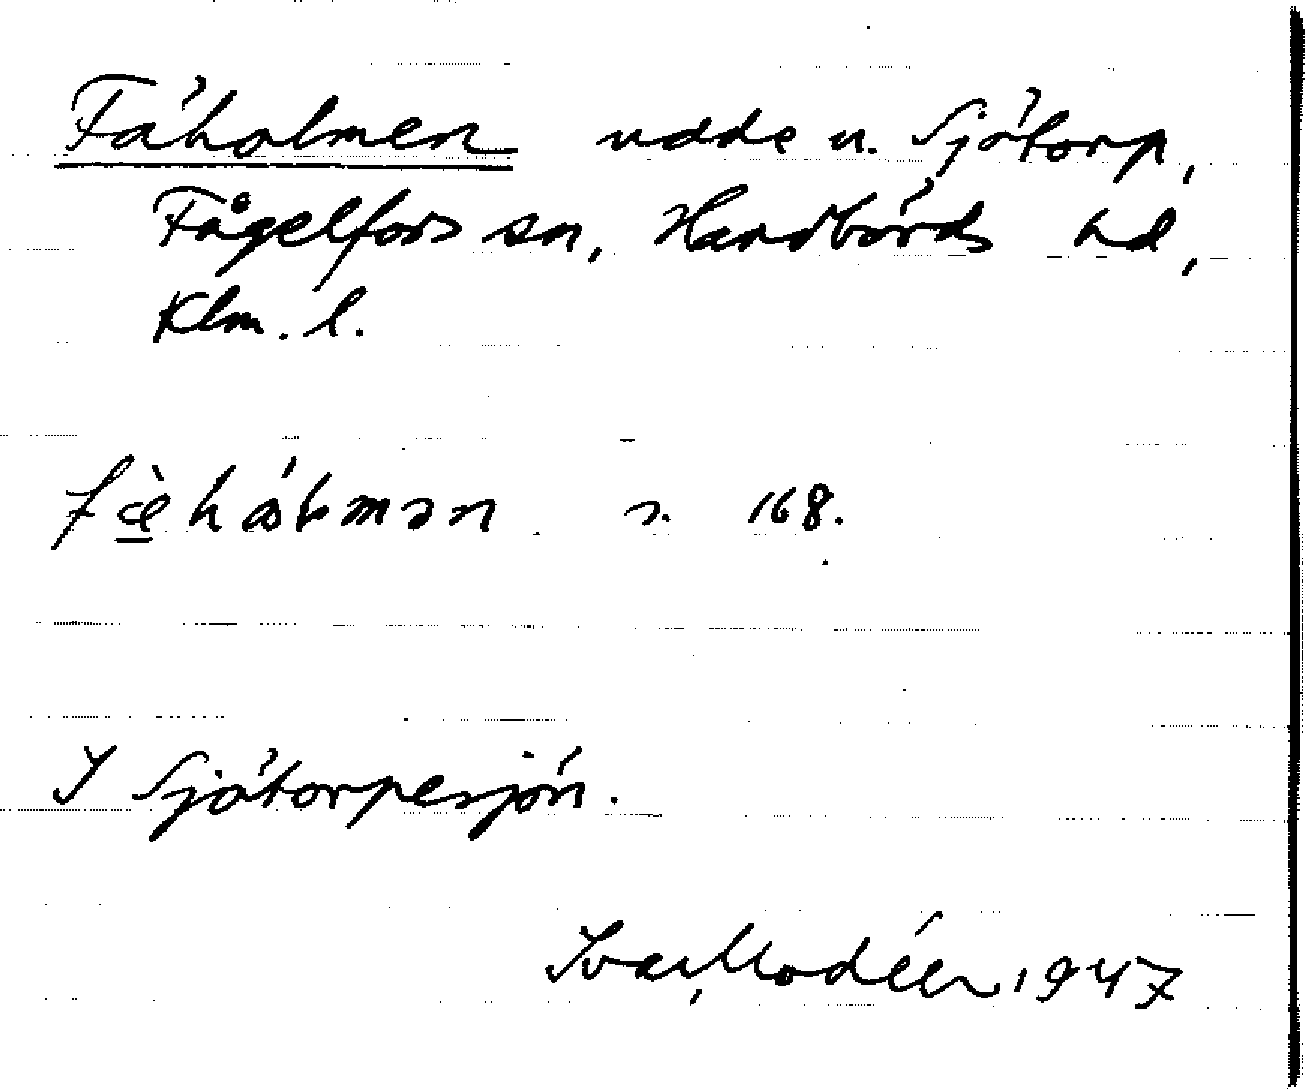 Fäholmen udde u. Sjötorp,
Fågelfors sn, Handbörds hd,
Klm. l.
s. 168.
I Sjötorpesjön.
Ivar Modéer 1947